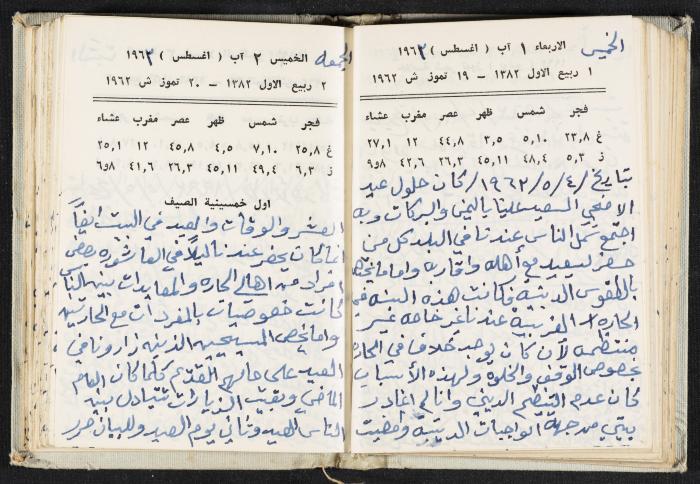 الخميس
الاربعاء ١ آب ( اغسطس ) ١٩٦٢
١ ربيع الاول ١٣٨٢ - ١٩ تموز ش ١٩٦٢
فجر شمس ظهر عصر مغرب عشاء
غ ٢٣,٨ ٥,١٠ ٣,٥ ٤٤,٨ ١٢ ٢٧,١
ز ٥,٣ ٤٨,٤ ٤٥,١١ ٢٦,٣ ٤٢,٦ ٨و٩
بتاريخ /٤/٥/١٩٦٣ كان حلول عيد
الاضحى السعيد علينا باليمن والبركات وبه
اجتمع شمل الناس عندنا في البلد كل من
حضر ليعيد مع أهله واقاربه واما ما يختص
بالطقوس الدينية فكانت هذه السنة في
الحارة الغربية عندنا غير
منتظمه لأن كان يوجد خلاف في الحارة
بخصوص الوقف والخلوة ولهذه الأسباب
كان عدم التنظيم الديني وانا لم اغادر
بيتي من جهة الواجبات الدينية ومضيت
الجمعه
الخميس ٢ آب ( اغسطس ) ١٩٦٢
٢ ربيع الاول ١٣٨٢ - ٢٠ تموز ش ١٩٦٢
فجر شمس ظهر عصر مغرب عشاء
غ ٢٥,٨ ٧,١٠ ٤,٥ ٤٥,٨ ١٢ ٢٥,١
ز ٦,٣ ٤٩,٤ ٤٥,١١ ٢٦,٣ ٤١,٦ ٨و٦
اول خمسينية الصيف
العشر والوقفات والعيد في البيت ايضاً
انما كان يحضر عندنا ليلاً في العاشوره بعض
افراد من اهالي الحاره والمعايدات بين الناس
كانت خصوصيات بالمفردات مع الحارتين
واما يخص المسيحيين الذين زارونا في
العيد على حالهم القديم كلما كان العام
الماضي وبقيت الزيارات تتبادل بين
الناس العيد وثاني يوم العيد وللبيان حرر